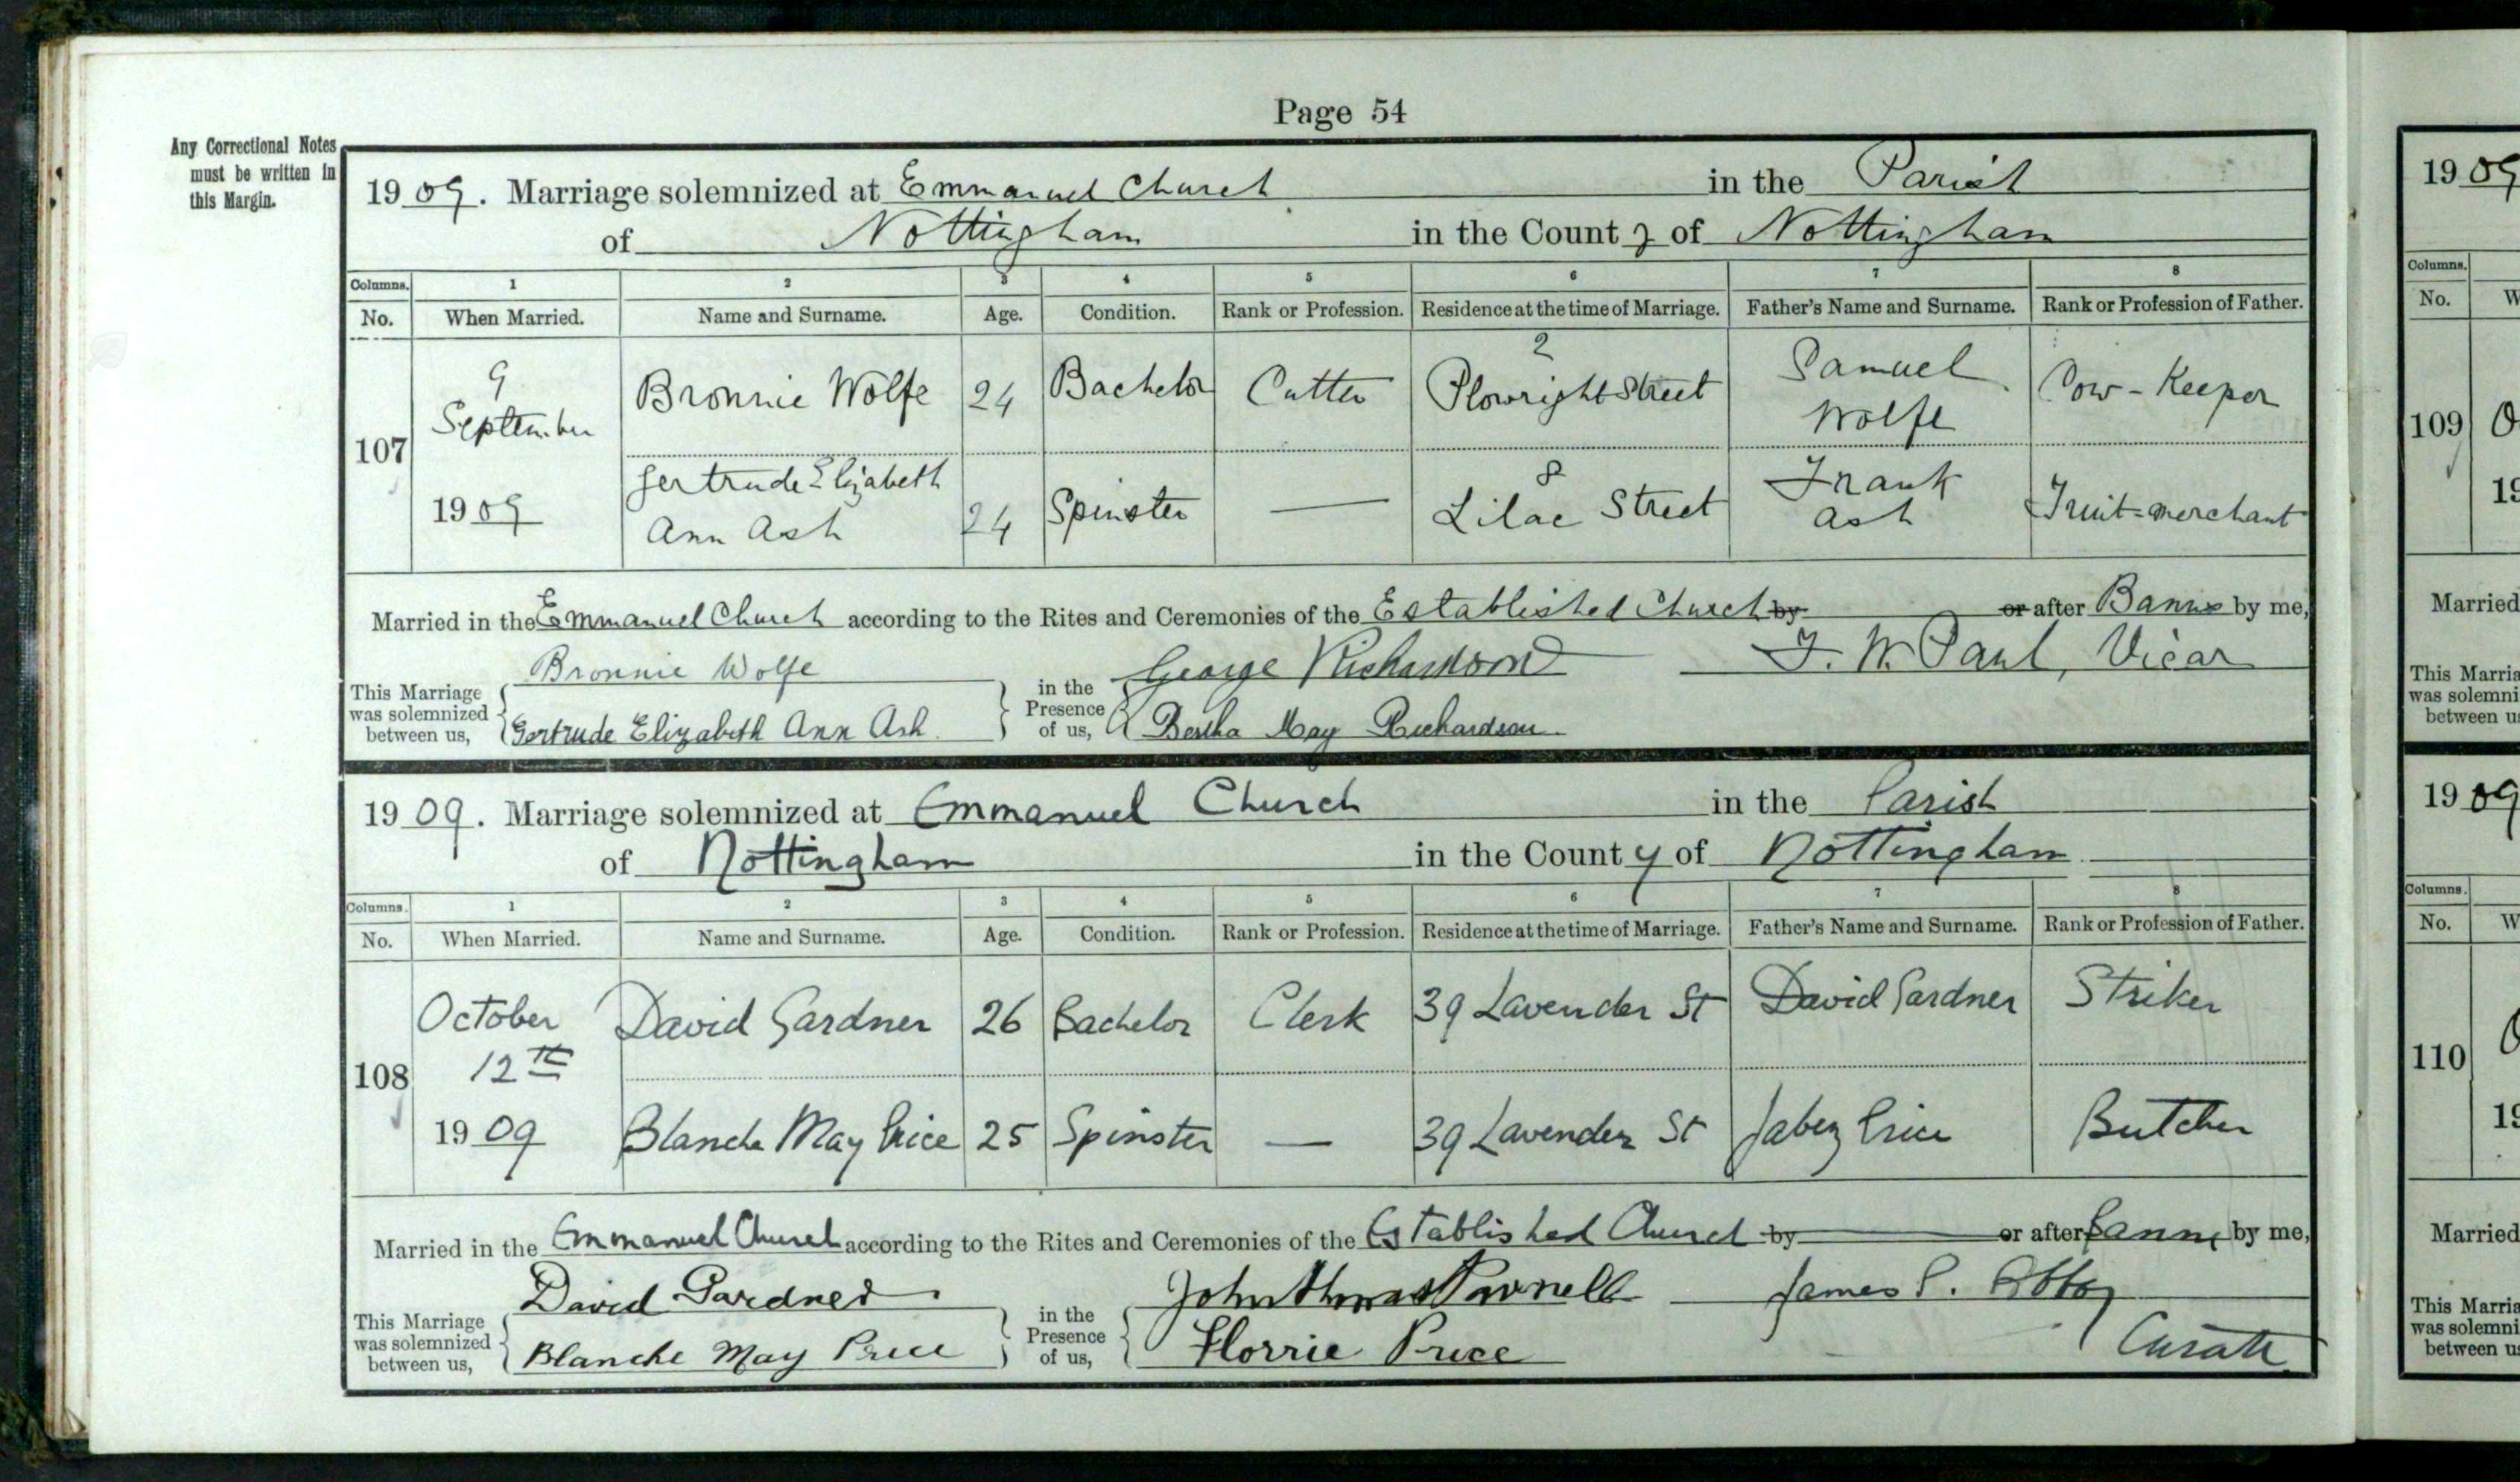 Page 54
Any Correctional Notes
must be written in
this Margin.
1909. Marriage solemnized at Emmanuel Church in the Parish
of Nottingham in the County of Nottingham
Columns. 1 2 3 4 5 6 7 8
No. When Married. Name and Surname. Age. Condition. Rank or Profession. Residence at the time of Marriage. Father's Name and Surname. Rank or Profession of Father.
107 9 September 1909 Bronnie Wolfe 24 Bachelor Cutter 2 Plowright Street Samuel Wolfe Cow-Keeper
Gertrude Elizabeth Ann Ash 24 Spinster — 8 Lilac Street Frank Ash Fruit-merchant
Married in the Emmanuel Church according to the Rites and Ceremonies of the Established Church by or after Banns by me,
Bronnie Wolfe George Richardson F. W. Paul, Vicar
This Marriage was solemnized between us, Gertrude Elizabeth Ann Ash in the Presence of us, Bertha May Richardson
1909. Marriage solemnized at Emmanuel Church in the Parish
of Nottingham in the County of Nottingham
Columns. 1 2 3 4 5 6 7 8
No. When Married. Name and Surname. Age. Condition. Rank or Profession. Residence at the time of Marriage. Father's Name and Surname. Rank or Profession of Father.
108 October 12th 1909 David Gardner 26 Bachelor Clerk 39 Lavender St David Gardner Striker
Blanche May Price 25 Spinster — 39 Lavender St Jabez Price Butcher
Married in the Emmanuel Church according to the Rites and Ceremonies of the Established Church by or after Banns by me,
David Gardner John Thomas Parnell James
This Marriage was solemnized between us, Blanche May Price in the Presence of us, Florrie Price Curate
1909
Columns.
No.
109
Married
This Marria
was solemni
between u
1909
Columns.
No.
110
Married
This Marria
was solemni
between u